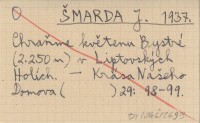 O ŠMARDA J. 1937.
Chraňme květenu Bystré
(2.250 m) v Liptovských
Holích. – Krása Našeho
Domova ( ) 29: 98-99.